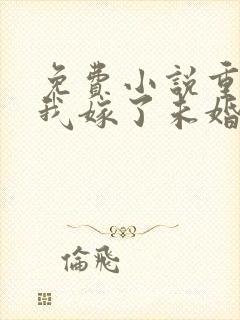 免费小说重
我嫁了未婚
倫飛